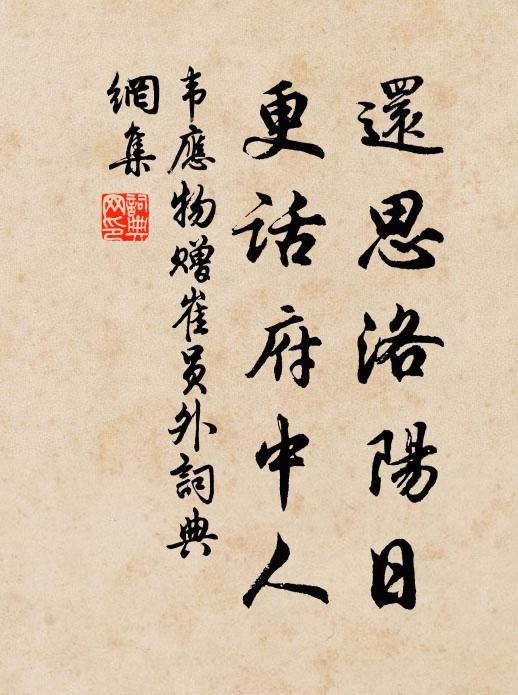 還思洛陽日
更話府中人
韦應物贈崔员外詞典
網集
詞典
网印